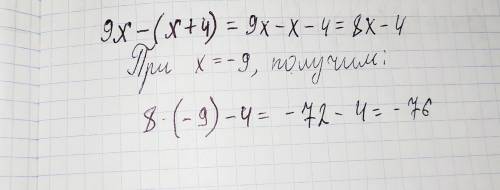 9x-(x+4)=9x-x-4=8x-4
При x=-9, получим:
8·(-9)-4= -72-4=-76